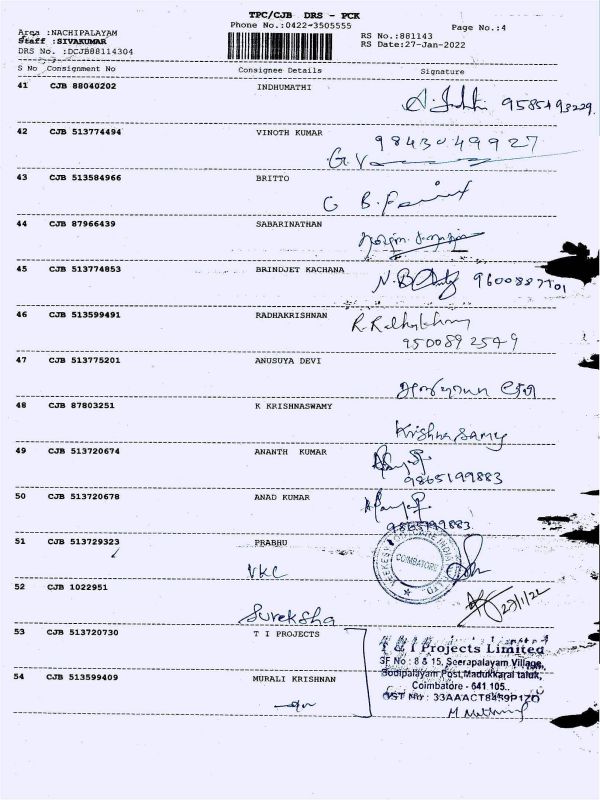 TPC/CJB DRS - PCK
Area :NACHIPALAYAM Phone No.:0422-3505555 Page No.:4
Staff :SIVAKUMAR RS No.:881143
DRS No. :DCJB88114304 RS Date:27-Jan-2022
S No Consignment No Consignee Details Signature
41 CJB 88040202 INDHUMATHI
42 CJB 513774494 VINOTH KUMAR
9843049927
43 CJB 513584966 BRITTO
44 CJB 87966439 SABARINATHAN
45 CJB 513774853 BRINDJET KACHANA
46 CJB 513599491 RADHAKRISHNAN
9500892549
47 CJB 513775201 ANUSUYA DEVI
48 CJB 87803251 K KRISHNASWAMY
Krishnasamy
49 CJB 513720674 ANANTH KUMAR
9865199883
50 CJB 513720678 ANAD KUMAR
9865199883
51 CJB 513729323 PRABHU
COIMBATORE
VKC
52 CJB 1022951
Sureksha
53 CJB 513720730 T I PROJECTS
T & I Projects Limited
SF No : 8 & 15, Seerapalayam Village,
Bodipalayam Post, Madukkarai taluk,
54 CJB 513599409 MURALI KRISHNAN
Coimbatore - 641 105.